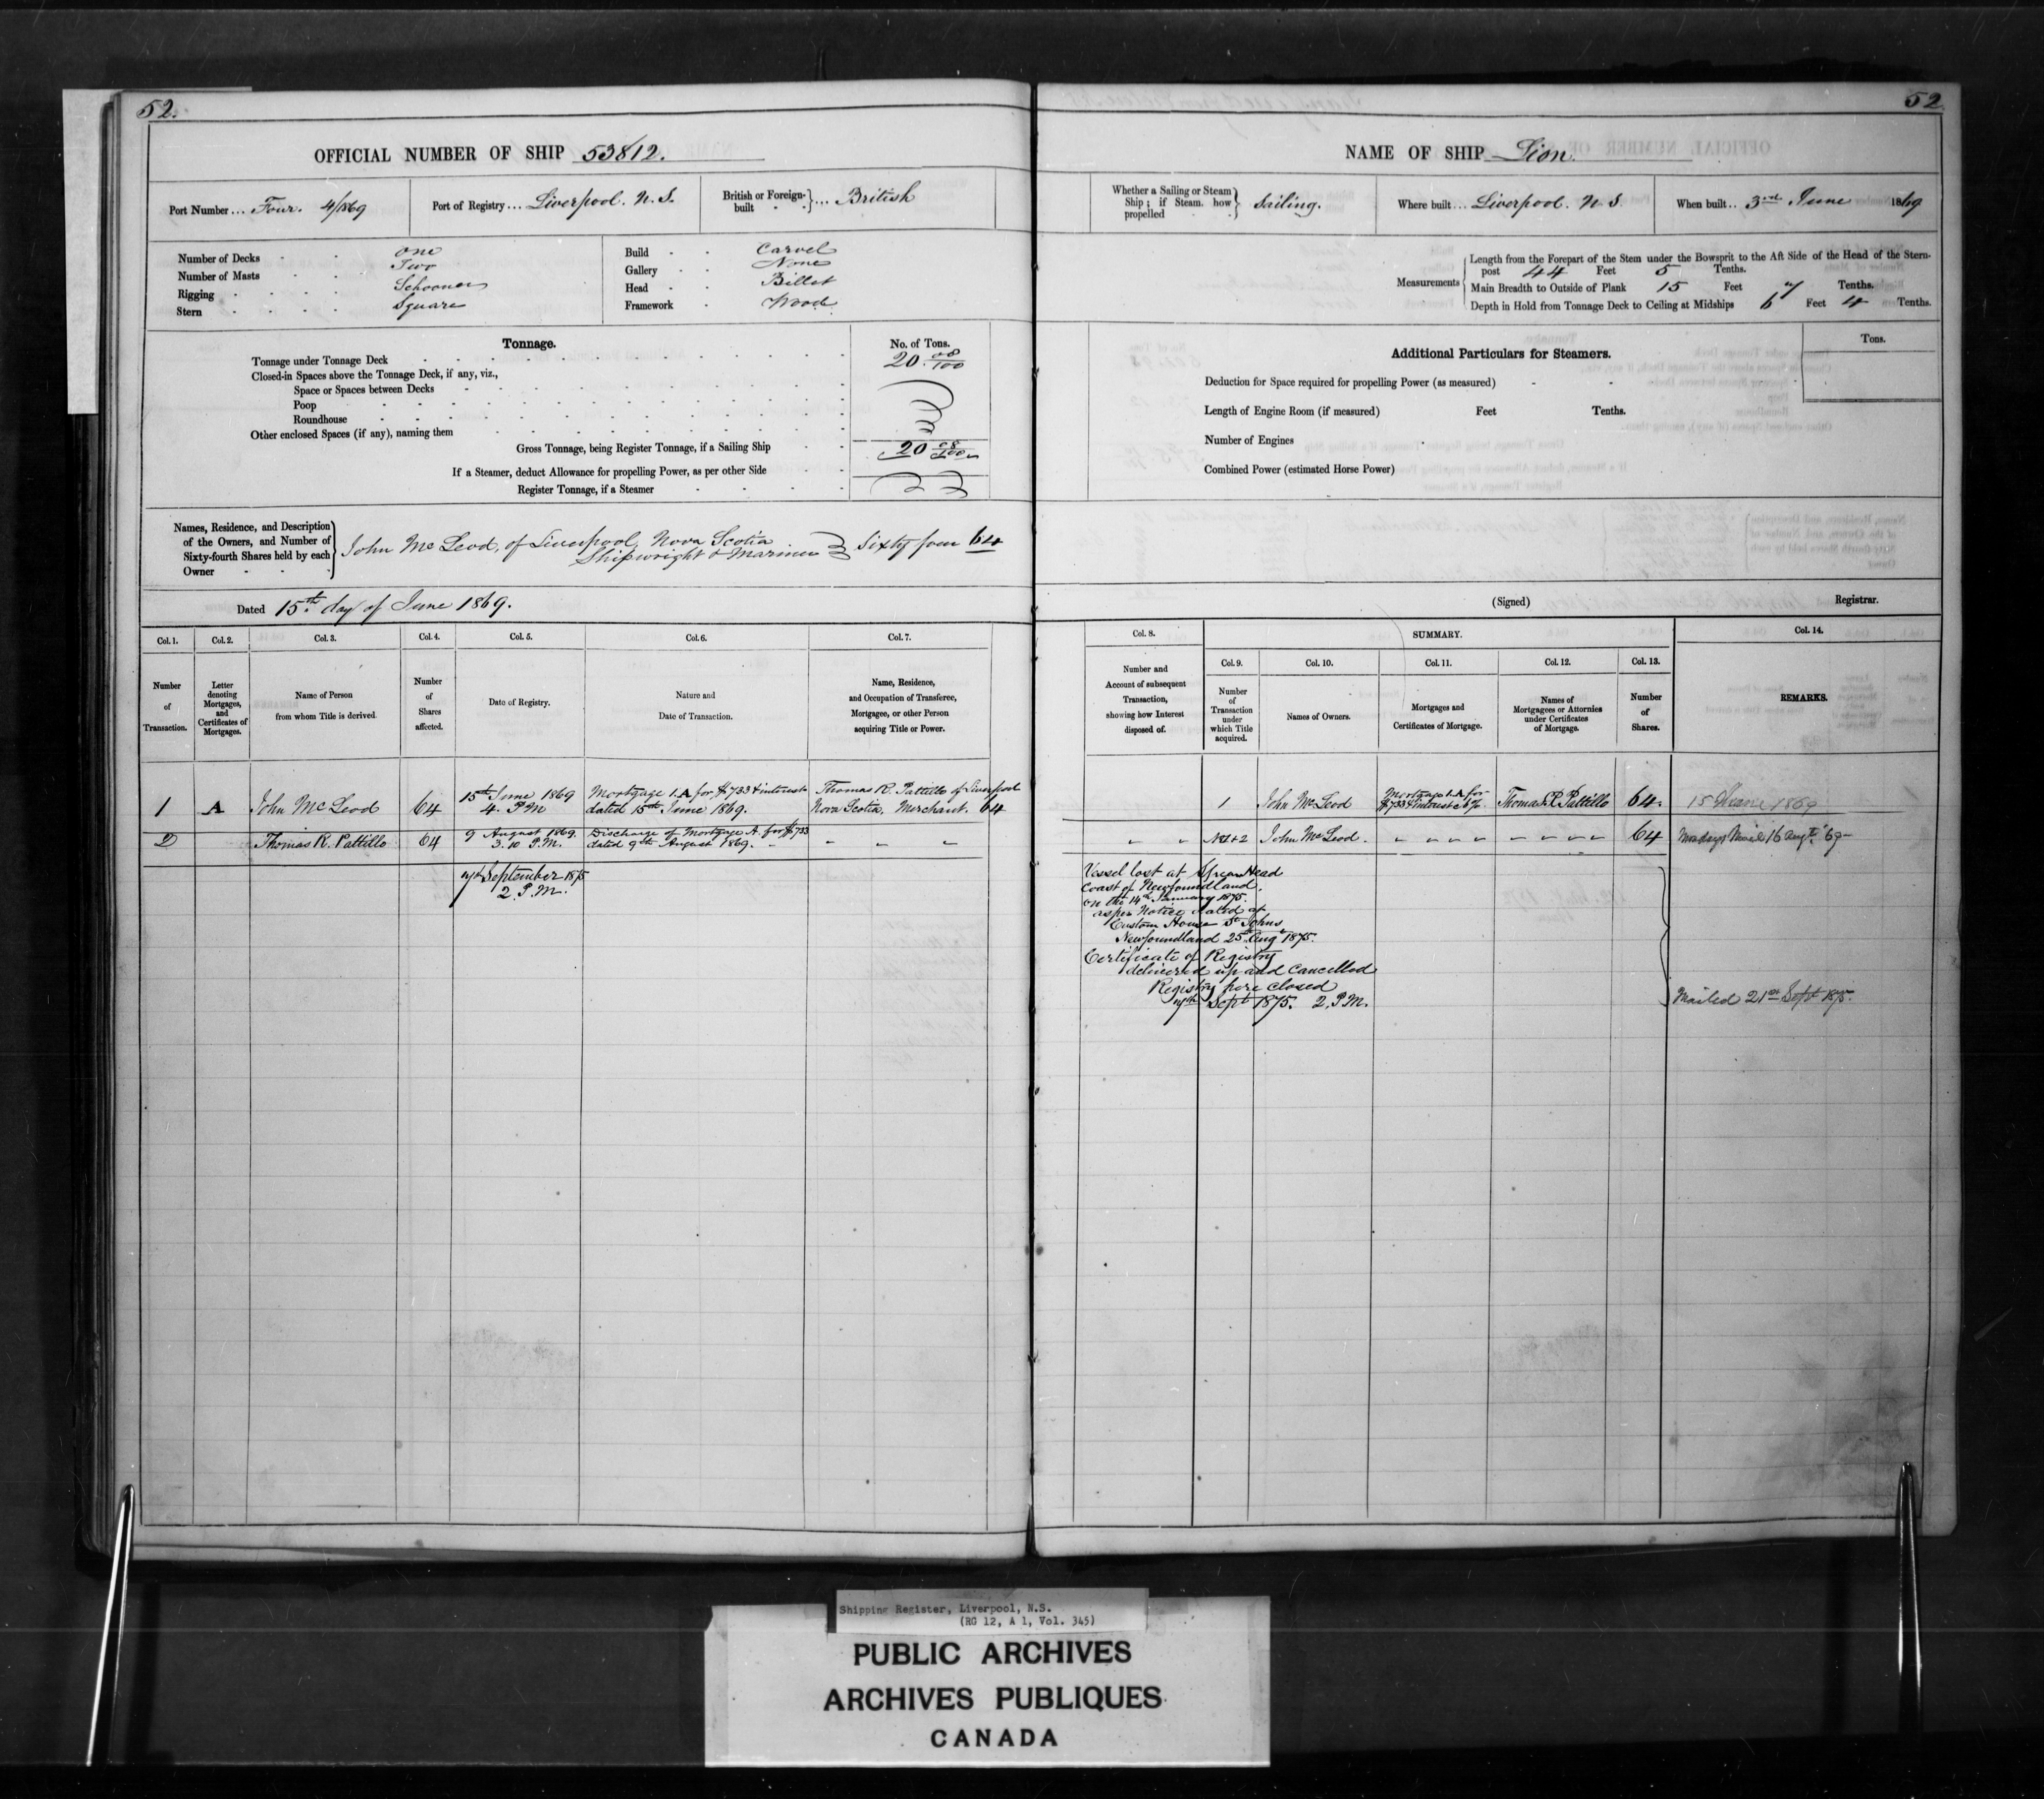 52.
OFFICIAL NUMBER OF SHIP 53812.
Port Number ... Four. 4/1869
Port of Registry ... Liverpool. N.S.
British or Foreign-built } ... British
Number of Decks One
Number of Masts Two
Rigging Schooner
Stern Square
Build Carvel
Gallery None
Head Billet
Framework Wood
Tonnage. No. of Tons.
Tonnage under Tonnage Deck 20 08/100
Closed-in Spaces above the Tonnage Deck, if any, viz.,
Space or Spaces between Decks
Poop
Roundhouse
Other enclosed Spaces (if any), naming them
Gross Tonnage, being Register Tonnage, if a Sailing Ship 20 08/100
If a Steamer, deduct Allowance for propelling Power, as per other Side
Register Tonnage, if a Steamer
Names, Residence, and Description
of the Owners, and Number of
Sixty-fourth Shares held by each
Owner
John McLeod, of Liverpool, Nova Scotia
Shipwright & Mariner } Sixty four 64
Dated 15th day of June 1869.
Col. 1. Col. 2. Col. 3. Col. 4. Col. 5. Col. 6. Col. 7.
Number of Transaction.
Letter denoting Mortgages, and Certificates of Mortgages.
Name of Person from whom Title is derived.
Number of Shares affected.
Date of Registry.
Nature and Date of Transaction.
Name, Residence, and Occupation of Transferee, Mortgagee, or other Person acquiring Title or Power.
1 A John McLeod 64
15th June 1869
4. P.M
Mortgage 1.A for $733 & interest
dated 15th June 1869.
Thomas R. Pattillo of Liverpool
Nova Scotia, Merchant. 64
2 Thomas R. Pattillo 64
9 August 1869.
3.10 P.M.
Discharge of Mortgage A. for $733
dated 9th August 1869. " " " "
7th September 1875
2 P.M.
52
NAME OF SHIP Lion
Whether a Sailing or Steam Ship; if Steam. how propelled } Sailing.
Where built ... Liverpool. N S.
When built .. 3rd June 1869
Measurements
Length from the Forepart of the Stem under the Bowsprit to the Aft Side of the Head of the Stern-
post 44 Feet 5 Tenths.
Main Breadth to Outside of Plank 15 Feet 7 Tenths.
Depth in Hold from Tonnage Deck to Ceiling at Midships 6 Feet 4 Tenths.
Additional Particulars for Steamers. Tons.
Deduction for Space required for propelling Power (as measured)
Length of Engine Room (if measured) Feet Tenths.
Number of Engines
Combined Power (estimated Horse Power)
(Signed) Registrar.
Col. 8. SUMMARY. Col. 14.
Col. 9. Col. 10. Col. 11. Col. 12. Col. 13.
Number and Account of subsequent Transaction, showing how Interest disposed of.
Number of Transaction under which Title acquired.
Names of Owners.
Mortgages and Certificates of Mortgage.
Names of Mortgagees or Attornies under Certificates of Mortgage.
Number of Shares.
REMARKS.
1 John McLeod
Mortgage 1.A for
$733 & interest @ 6%
Thomas R. Pattillo 64. 15 June 1869
" " No 1+2 John McLeod. " " " " " " " " 64 Mondays Mail 16 Augt. '69
Vessel lost at Head
Coast of Newfoundland.
on the 14th January 1875.
as per Notice dated at
Custom House St Johns
Newfoundland 25th Aug 1875.
Certificate of Registry
delivered up and cancelled
Registry here closed
7th Sept 1875. 2 P.M.
Mailed 21st Sept 1875.
Shipping Register, Liverpool, N.S.
(RG 12, A 1, Vol. 345)
PUBLIC ARCHIVES
ARCHIVES PUBLIQUES
CANADA